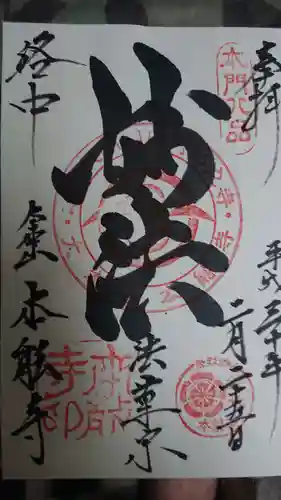 奉拝
平成三十年
二月二十五日
本門八品
妙法
法華宗
洛中
本山
本能寺